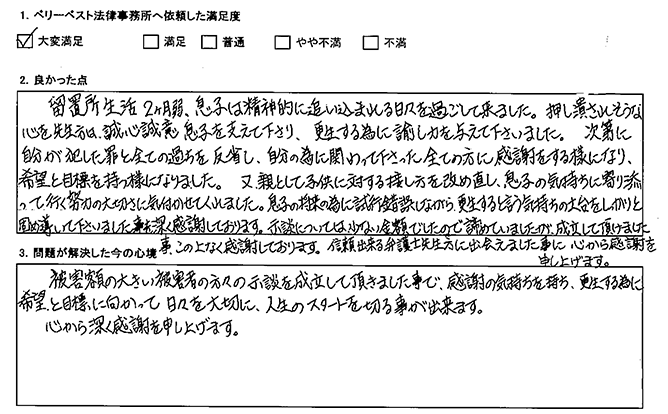 1. ベリーベスト法律事務所へ依頼した満足度
大変満足 満足 普通 やや不満 不満
2. 良かった点
留置所生活2ヶ月弱、息子は精神的に追い込まれる日々を過ごして来ました。押し潰されそうな
心を先生方は、誠心誠意息子を支えて下さり、更生する為に諭し力を与えて下さいました。次第に
自分が犯した罪と全ての過ちを反省し、自分の為に関わって下さった全ての方に感謝をする様になり、
希望と目標を持つ様になりました。又親として子供に対する接し方を改め直し、息子の気持ちに寄り添
って行く努力の大切さに気付かせてくれました。息子の将来の為に試行錯誤しながら更生すると言う気持ちの土台をしっかりと
固め導して下さいました事を深く感謝しております。示談については少ない金額でしたので諦めていましたが、成立して頂けました
事、この上なく感謝しております。信頼出来る弁護士先生方に出会えました事に心から感謝を
申し上げます。
3. 問題が解決した今の心境
被害額の大きい被害者の方々の示談を成立して頂きました事で、感謝の気持ちを持ち、更生する為に
希望と目標に向かって日々を大切に、人生のスタートを切る事が出来ます。
心から深く感謝を申し上げます。